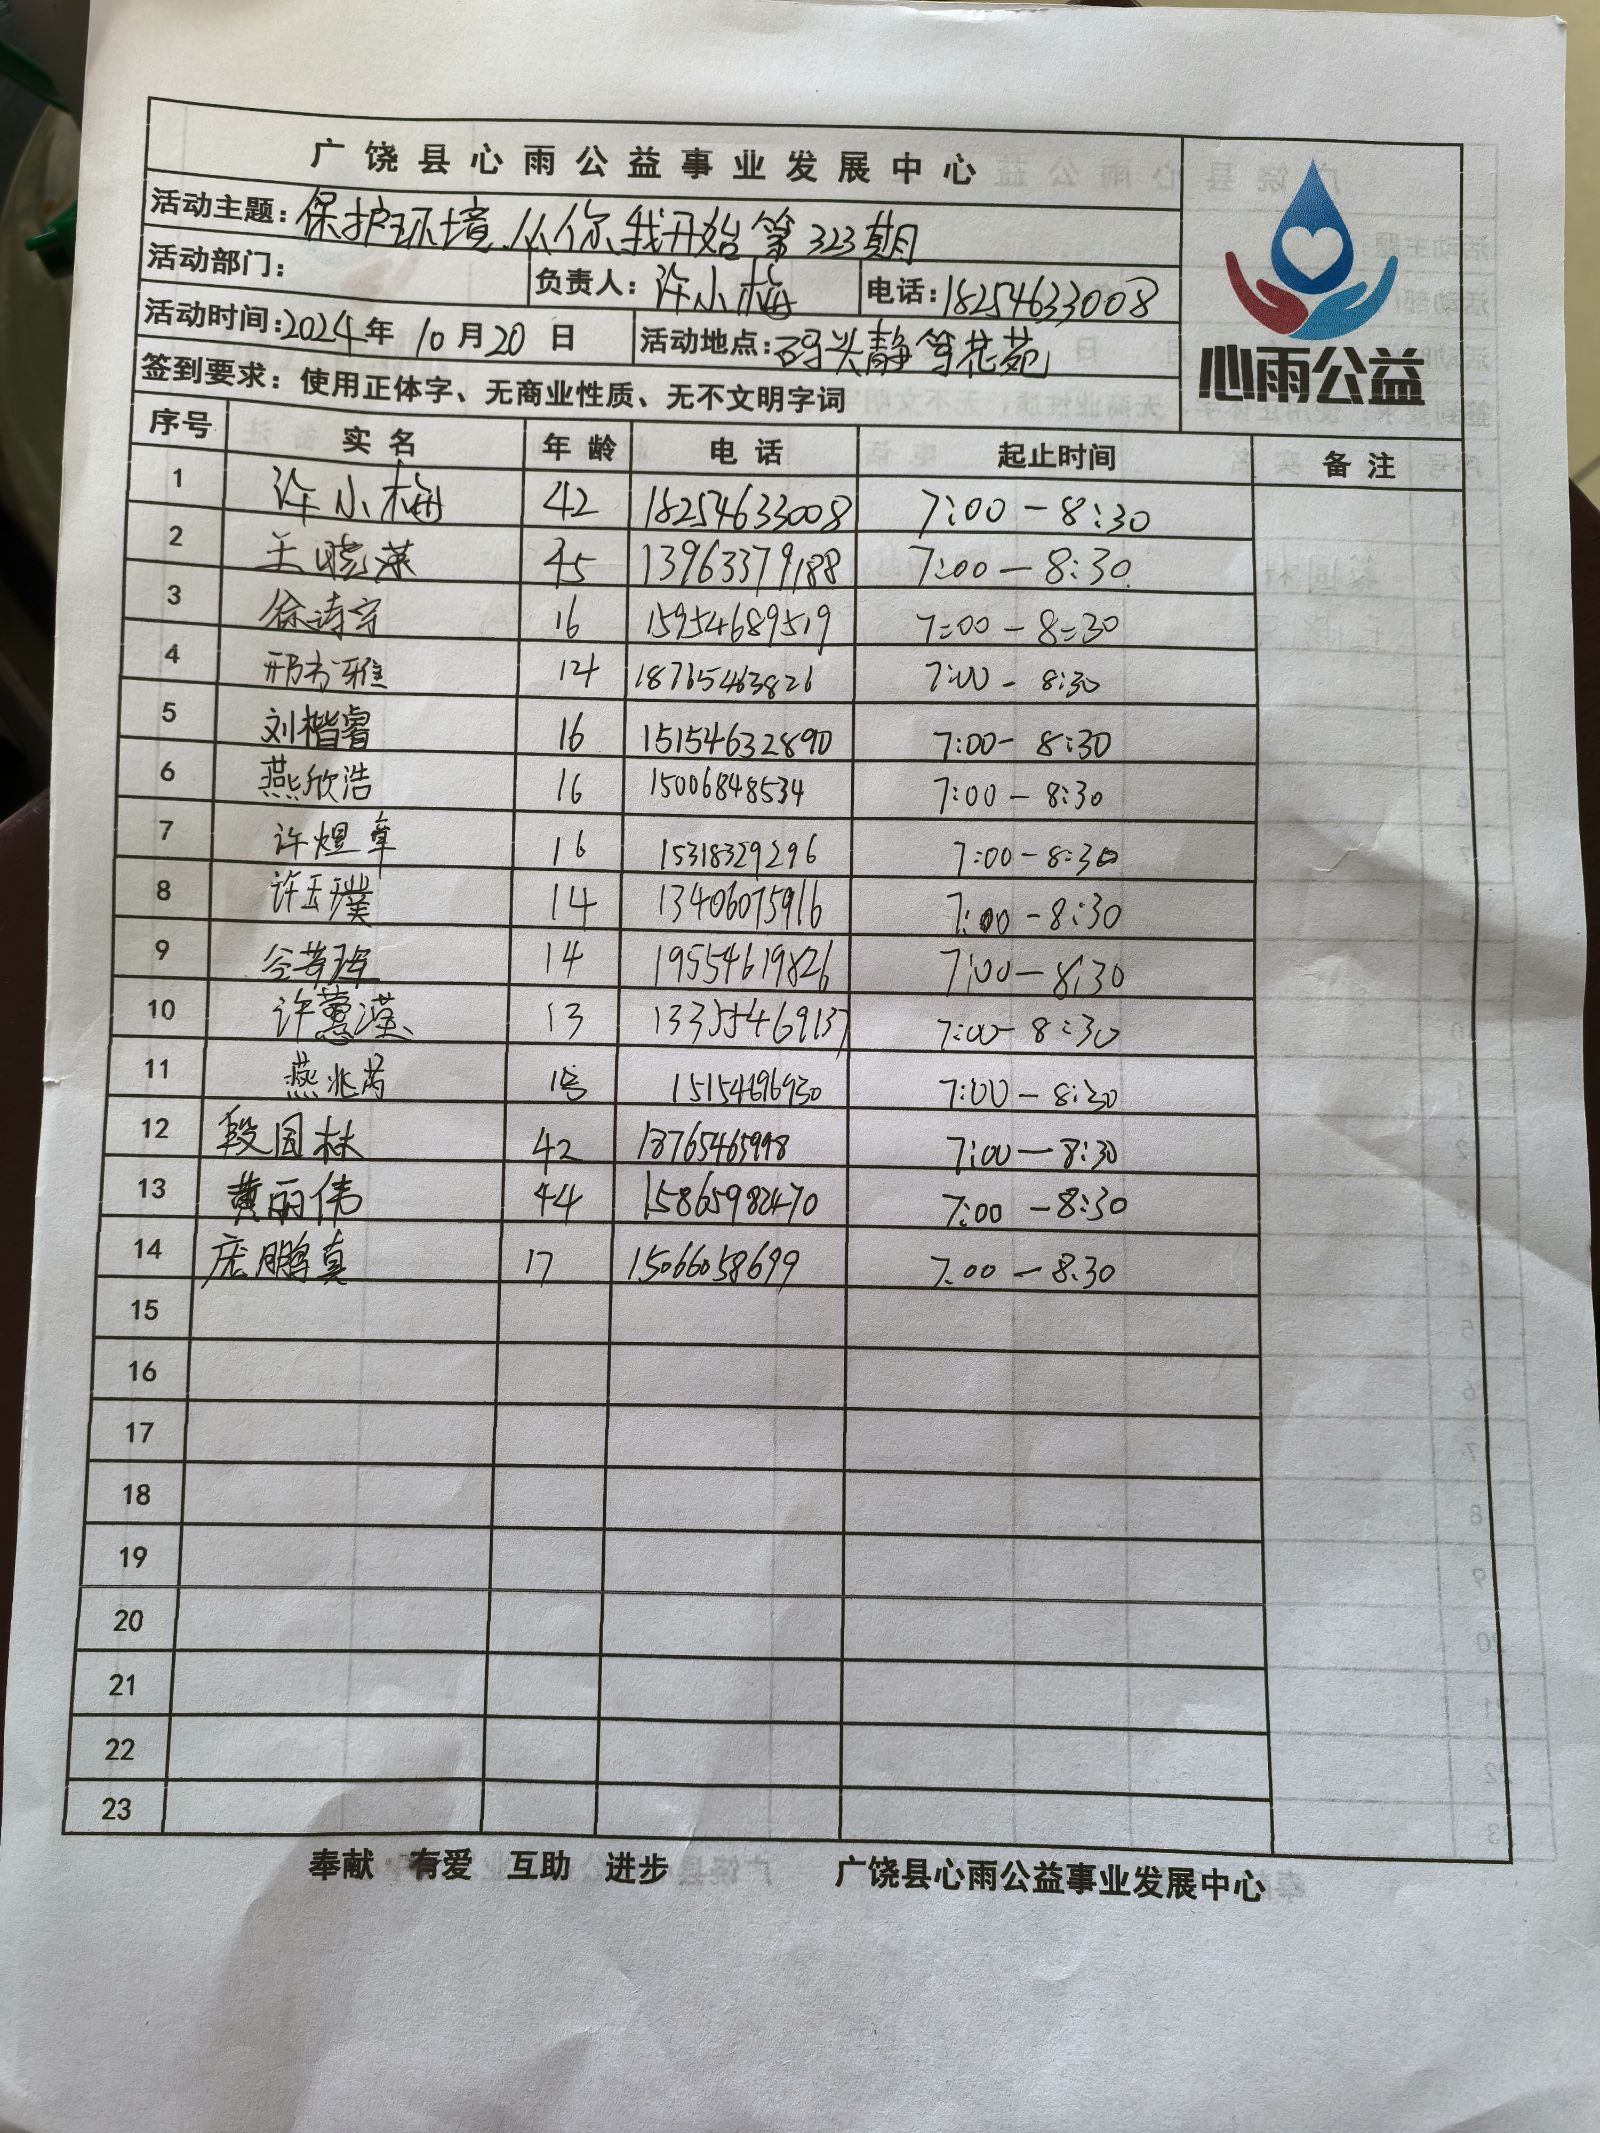 广饶县心雨公益事业发展中心
活动主题：保护环境.从你我开始第323期
活动部门： 负责人：许小梅 电话：18254633008
活动时间：2024年10月20日 活动地点：静等花苑
签到要求：使用正体字、无商业性质、无不文明字词
心雨公益
序号 实名 年龄 电话 起止时间 备注
1 许小梅 42 18254633008 7:00-8:30
2 王晓 45 13963379188 7:00-8:30
3 徐诗宇 16 15954689519 7:00-8:30
4 邢书雅 14 18765463826 7:00-8:30
5 刘楷睿 16 15154632890 7:00-8:30
6 燕欣浩 16 15006848534 7:00-8:30
7 许煜章 16 15318329296 7:00-8:30
8 许玉璞 14 13406075916 7:00-8:30
9 14 19554619826 7:00-8:30
10 许蕙滢 13 13355469137 7:00-8:30
11 燕兆芮 15154696930 7:00-8:30
12 段国林 42 18765465998 7:00-8:30
13 黄丽伟 44 15865982470 7:00-8:30
14 庞鹏真 17 15066058699 7:00-8:30
15
16
17
18
19
20
21
22
23
奉献 有爱 互助 进步 广饶县心雨公益事业发展中心